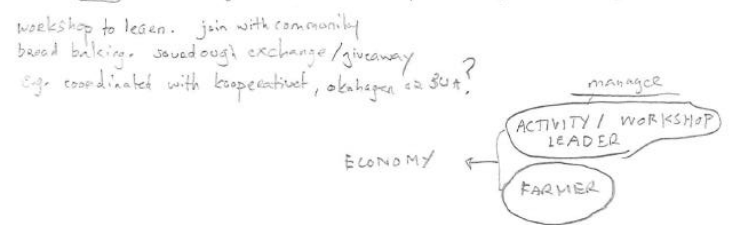 workshop to learn. join with community
bread baking. sourdough exchange/giveaway
e.g. coordinated with kooperativet, or BUA?
manager
ACTIVITY / WORKSHOP
LEADER
ECONOMY
FARMER